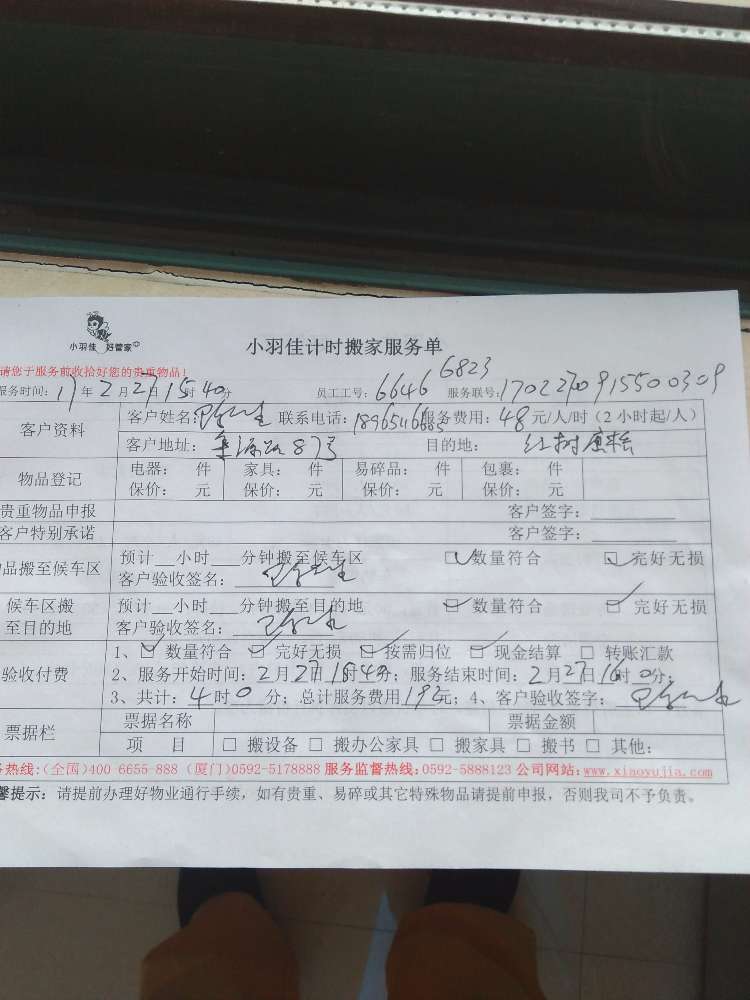 小羽佳 好管家
小羽佳计时搬家服务单
请您于服务前收拾好您的贵重物品!
6823
服务时间: 17年2月27日15时40分 员工工号: 6646 服务联号: 1702270915500309
客户资料 客户姓名: 联系电话: 服务费用: 48元/人/时(2小时起/人)
客户地址: 87号 目的地: 红树康桥
物品登记 电器: 件 家具: 件 易碎品: 件 包裹: 件
保价: 元 保价: 元 保价: 元 保价: 元
贵重物品申报 客户签字:
客户特别承诺 客户签字:
品搬至候车区 预计 小时 分钟搬至候车区 数量符合 完好无损
客户验收签名:
候车区搬至目的地 预计 小时 分钟搬至目的地 数量符合 完好无损
客户验收签名:
验收付费 1、 数量符合 完好无损 按需归位 现金结算 转账汇款
2、服务开始时间: 2月27日15时40分; 服务结束时间: 2月27日16时0分;
3、共计: 4时0分; 总计服务费用192元; 4、客户验收签字:
票据栏 票据名称 票据金额
项 目 搬设备 搬办公家具 搬家具 搬书 其他:
务热线:(全国)400 6655 888 (厦门)0592-5178888 服务监督热线:0592-5888123 公司网站:www.xiaoyujia.com
馨提示: 请提前办理好物业通行手续, 如有贵重、易碎或其它特殊物品请提前申报, 否则我司不予负责。